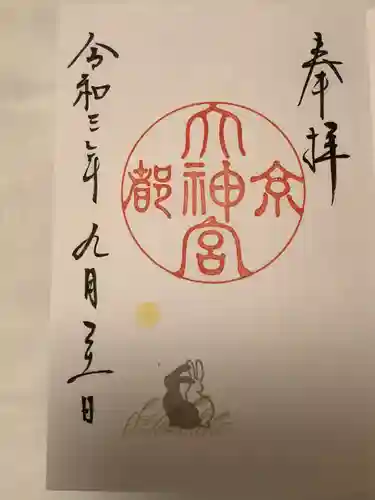 奉拝
京都大神宮
令和三年九月二十五日